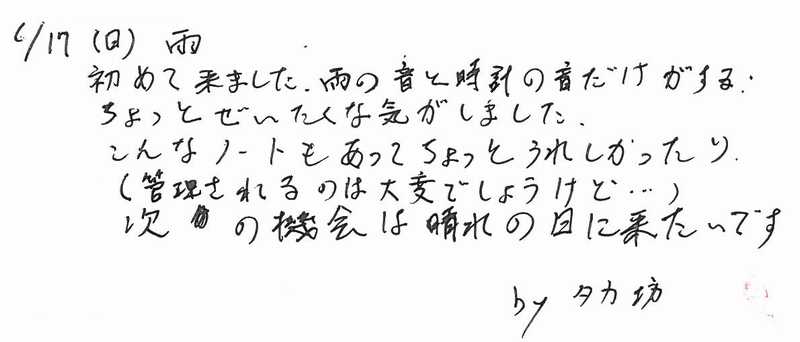 6/17 (日) 雨
初めて来ました.雨の音と時計の音だけがする.
ちょっとぜいたくな気がしました.
こんなノートもあってちょっとうれしかったり.
(管理されるのは大変でしょうけど…)
次の機会は晴れの日に来たいです
by タカ坊